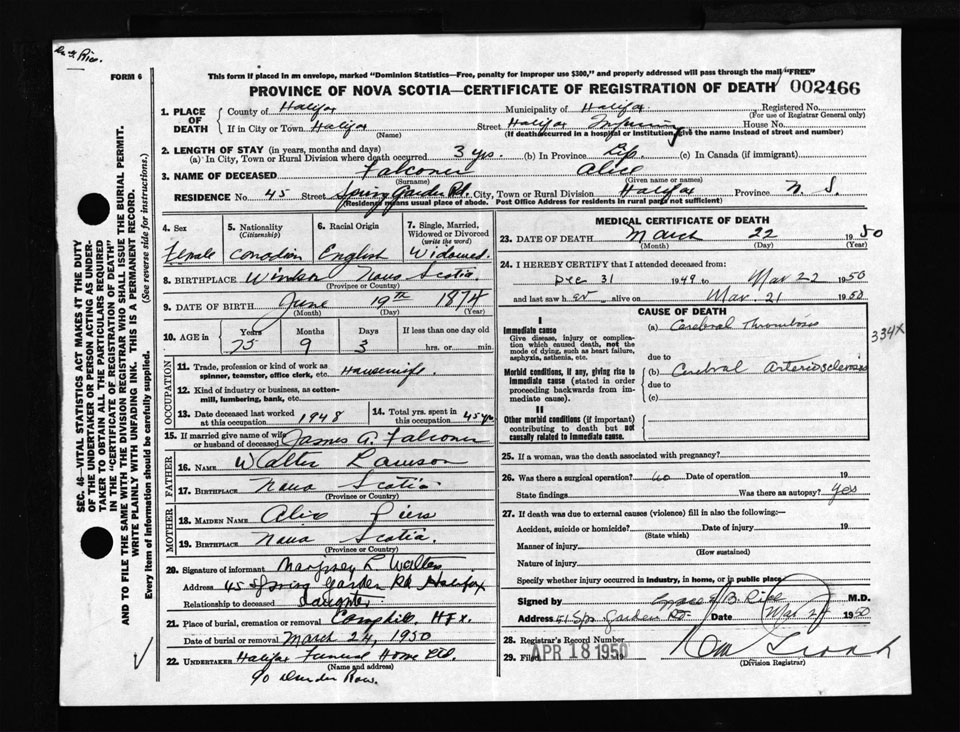 Rice.
FORM 6
This form if placed in an envelope, marked "Dominion Statistics—Free, penalty for improper use $300," and properly addressed will pass through the mail "FREE"
PROVINCE OF NOVA SCOTIA—CERTIFICATE OF REGISTRATION OF DEATH 002466
1. PLACE OF DEATH
County of Halifax Municipality of Halifax Registered No.
(For use of Registrar General only)
If in City or Town Halifax Street Halifax Infirmary House No.
(Name) (If death occurred in a hospital or institution, give the name instead of street and number)
2. LENGTH OF STAY (in years, months and days)
(a) In City, Town or Rural Division where death occurred 3 yrs. (b) In Province Life. (c) In Canada (if immigrant)
3. NAME OF DECEASED Falconer Alice
(Surname) (Given name or names)
RESIDENCE No. 45 Street Spring Garden Rd. City, Town or Rural Division Halifax Province N. S.
(Residence means usual place of abode. Post Office Address for residents in rural parts not sufficient)
4. Sex
Female
5. Nationality
(Citizenship)
Canadian
6. Racial Origin
English
7. Single, Married, Widowed or Divorced
(write the word)
Widowed.
8. BIRTHPLACE Windsor Nova Scotia.
(Province or Country)
9. DATE OF BIRTH June 19th 1874
(Month) (Day) (Year)
10. AGE in Years Months Days If less than one day old
75 9 3 hrs. or min.
OCCUPATION
11. Trade, profession or kind of work as spinner, teamster, office clerk, etc. Housewife.
12. Kind of industry or business, as cotton-mill, lumbering, bank, etc.
13. Date deceased last worked at this occupation 1948
14. Total yrs. spent in this occupation 45 yrs.
15. If married give name of wife or husband of deceased James G. Falconer
FATHER
16. NAME Walter Lawson
17. BIRTHPLACE Nova Scotia.
(Province or Country)
MOTHER
18. MAIDEN NAME Alice Piers
19. BIRTHPLACE Nova Scotia.
(Province or Country)
20. Signature of informant L. Walters
Address 45 Spring Garden Rd. Halifax
Relationship to deceased daughter.
21. Place of burial, cremation or removal Camphill, HFX.
Date of burial or removal March 24, 1950
22. UNDERTAKER Halifax Funeral Home Ltd.
(Name and address)
90 Row.
MEDICAL CERTIFICATE OF DEATH
23. DATE OF DEATH March 22 1950
(Month) (Day) (Year)
24. I HEREBY CERTIFY that I attended deceased from:
Dec 31 1949 to Mar 22 1950
and last saw her alive on Mar. 21 1950
CAUSE OF DEATH
I
Immediate cause
Give disease, injury or complication which caused death, not the mode of dying, such as heart failure, asphyxia, asthenia, etc.
(a) Cerebral Thrombosis
due to
334X
Morbid conditions, if any, giving rise to immediate cause (stated in order proceeding backwards from immediate cause).
(b) Cerebral Arteriosclerosis
due to
(c)
II
Other morbid conditions (if important) contributing to death but not causally related to immediate cause.
25. If a woman, was the death associated with pregnancy?
26. Was there a surgical operation? No Date of operation 19
State findings Was there an autopsy? Yes
27. If death was due to external causes (violence) fill in also the following:—
Accident, suicide or homicide? Date of injury 19
(State which)
Manner of injury
(How sustained)
Nature of injury
Specify whether injury occurred in industry, in home, or in public place
Signed by Grace E. B. Rice M.D.
Address 51 Spr Garden Rd. Date Mar 1950
28. Registrar's Record Number
29. Filed APR 18 1950
(Division Registrar)
SEC. 46—VITAL STATISTICS ACT MAKES IT THE DUTY
OF THE UNDERTAKER OR PERSON ACTING AS UNDER-
TAKER TO OBTAIN ALL THE PARTICULARS REQUIRED
IN THE "CERTIFICATE OF REGISTRATION OF DEATH"
AND TO FILE THE SAME WITH THE DIVISION REGISTRAR WHO SHALL ISSUE THE BURIAL PERMIT.
WRITE PLAINLY WITH UNFADING INK. THIS IS A PERMANENT RECORD.
Every item of information should be carefully supplied. (See reverse side for instructions.)